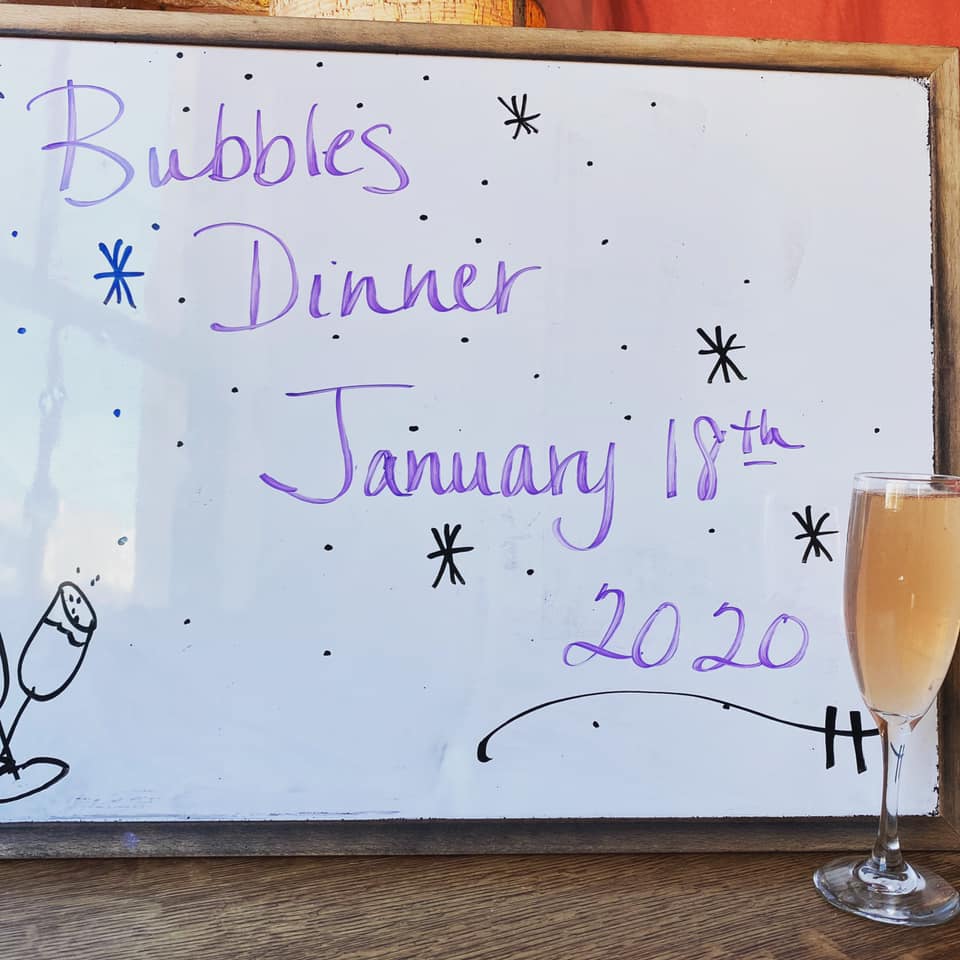 Bubbles
Dinner
January 18th
2020